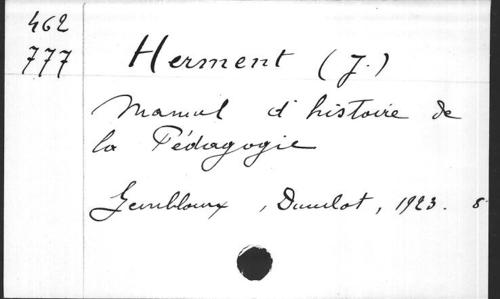 462
777
Herment (J.)
Manuel d'histoire de
la Pédagogie
Gembloux, Duculot, 1923. 8